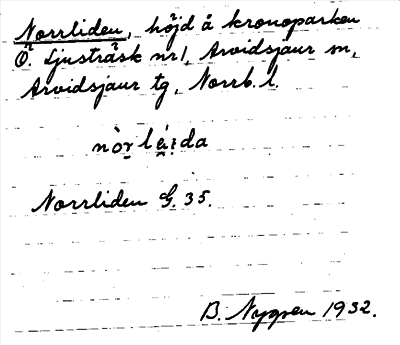 Norrliden, höjd å kronoparken
Ö. Ljusträsk nr 1, Arvidsjaur sn,
Arvidsjaur tg, Norrb. l.
nòr̲lá̱ı̣da
Norrliden G. 35.
B. Nygren 1932.